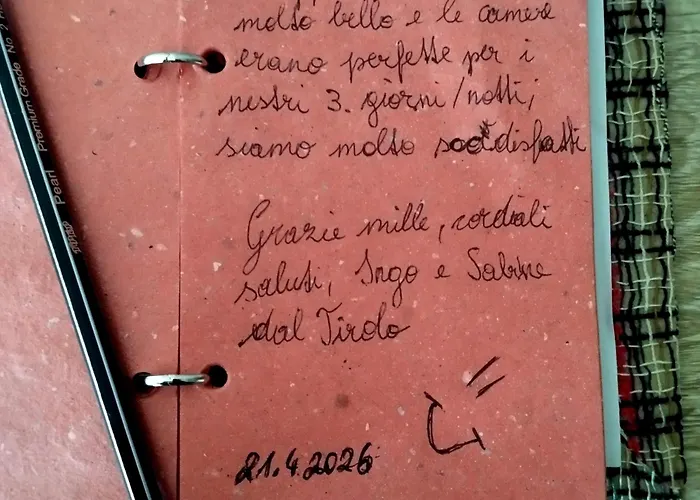 molto bello e le camere
erano perfette per i
nostri 3. giorni/notti,
siamo molto soddisfatti
Grazie mille, cordiali
saluti, Ingo e Sabine
dal Tirolo
21.4.2026
Pearl Premium Grade No 7